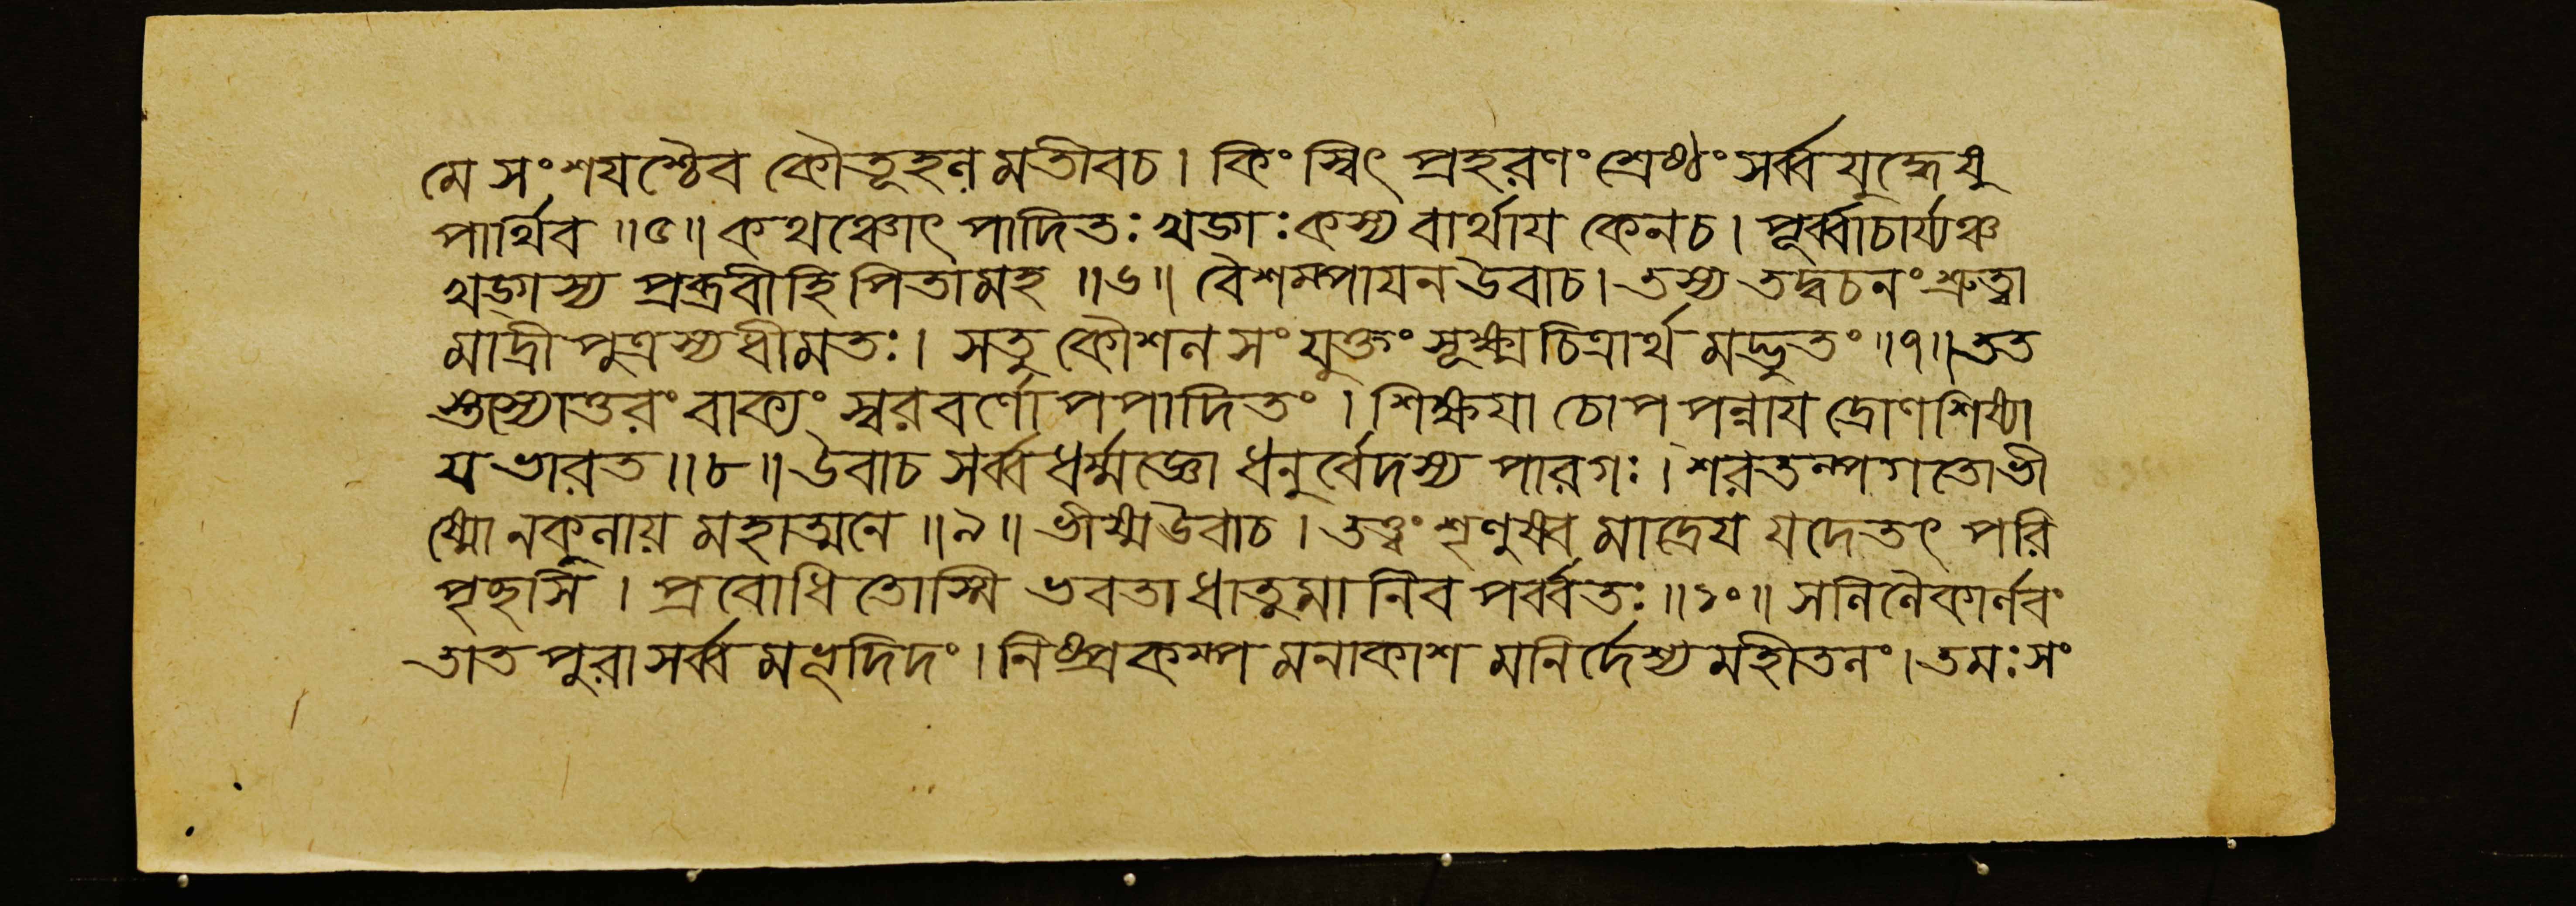 মে সংশযশ্চৈব কৌতূহল মতীবচ । কিং স্বিৎ প্রহরণং শ্রেষ্ঠং সর্ব্ব যুদ্ধেষু
পার্থিব ॥৫॥ কথঞ্চোৎ পাদিতঃ খড়্গঃ কস্য বার্থায কেনচ । পূর্ব্বাচার্য্যঞ্চ
খড়্গস্য প্রব্রবীহি পিতামহ ॥৬॥ বৈশম্পাযন উবাচ । তস্য তদ্বচনং শ্রুত্বা
মাদ্রী পুত্রস্য ধীমতঃ । সতু কৌশল সংযুক্তং সূক্ষ্ম চিত্রার্থ মদ্ভুতং ॥৭॥ তত
স্তস্যোত্তরং বাক্যং স্বরবর্ণো পপাদিতং । শিক্ষযা চোপপন্নায দ্রোণশিষ্যা
য ভারত ॥৮॥ উবাচ সর্ব্ব ধর্ম্মজ্ঞো ধনুর্বেদস্য পারগঃ । শরতল্পগতো ভী
ষ্মো নকুলায় মহাত্মনে ॥৯॥ ভীষ্ম উবাচ । তত্ত্বং শৃণুষ্ব মাদ্রেয যদেতৎ পরি
পৃচ্ছসি । প্রবোধিতোস্মি ভবতা ধাতুমা নিব পর্ব্বতঃ ॥১০॥ সলিলৈকার্ণবং
তাত পুরা সর্ব্ব মভূদিদং । নিষ্প্রকম্প মনাকাশ মনির্দেশ্য মহীতলং । তমঃ সং